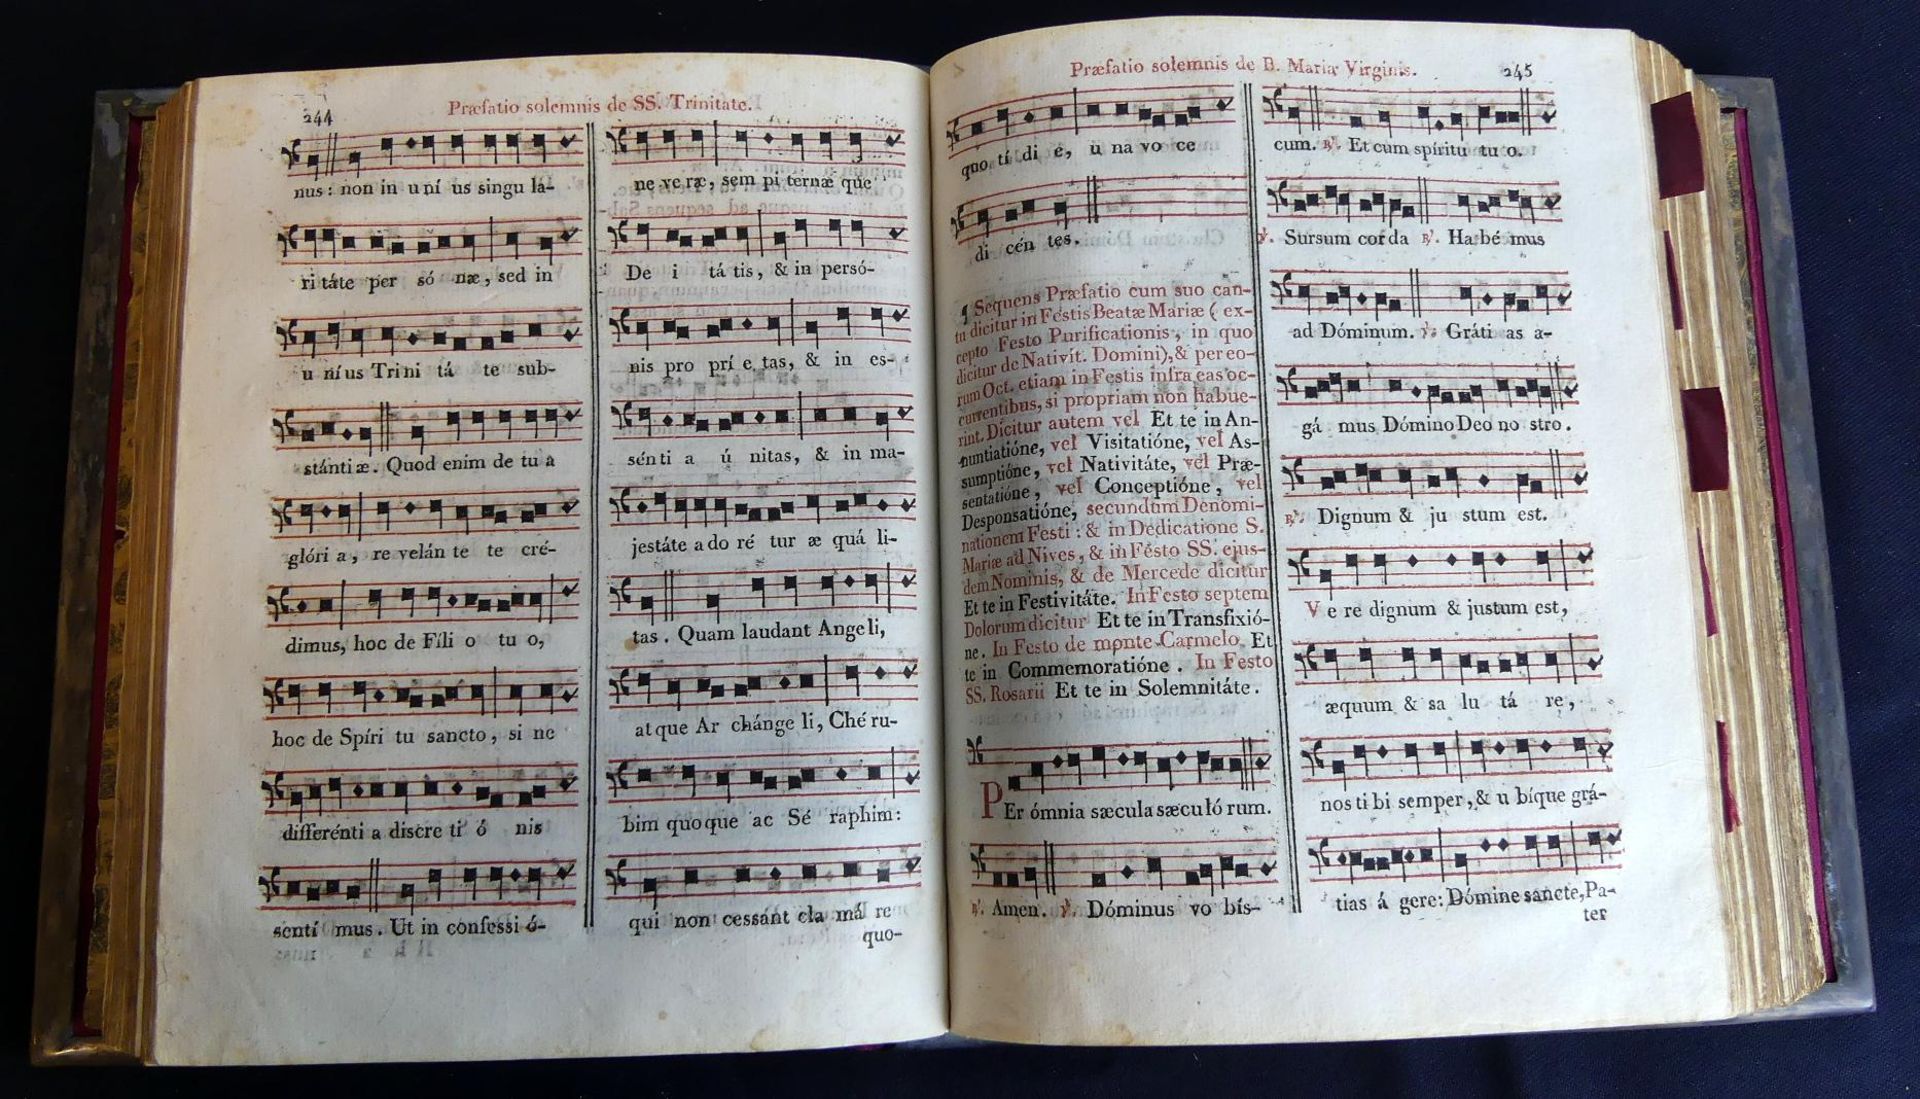 244
Præfatio solemnis de SS. Trinitate.
nus: non in uní us singu la-
ri táte per só næ, sed in
u níus Trini tá te sub-
stánti æ. Quod enim de tu a
glóri a, re velán te te cré-
dimus, hoc de Fíli o tu o,
hoc de Spíri tu sancto, si ne
differénti a discre ti ó nis
sentí mus. Ut in confessi ó-
ne ve ræ, sem pi ternæ que
De i tá tis, & in persó-
nis pro prí e tas, & in es-
sénti a ú nitas, & in ma-
jestáte a do ré tur æ quá li-
tas. Quam laudant Ange li,
at que Ar chánge li, Ché ru-
bim quo que ac Sé raphim:
qui non cessant cla má re
quo-
Præfatio solemnis de B. Maria Virginis.
245
quo tí di e, u na vo ce
di cén tes.
¶ Sequens Præfatio cum suo can-
tu dicitur in Festis Beatæ Mariæ (ex-
cepto Festo Purificationis, in quo
dicitur de Nativit. Domini), & per eo-
rum Oct. etiam in Festis infra eas oc-
currentibus, si propriam non habue-
rint. Dicitur autem vel Et te in An-
nuntiatióne, vel Visitatióne, vel As-
sumptióne, vel Nativitáte, vel Præ-
sentatióne, vel Conceptióne, vel
Desponsatióne, secundum Denomi-
nationem Festi: & in Dedicatione S.
Mariæ ad Nives, & in Festo SS. ejus-
dem Nominis, & de Mercede dicitur
Et te in Festivitáte. In Festo septem
Dolorum dicitur Et te in Transfixió-
ne. In Festo de monte Carmelo Et
te in Commemoratióne. In Festo
SS. Rosarii Et te in Solemnitáte.
PEr ómnia sæcula sæcu ló rum.
℟. Amen. ℣. Dóminus vo bís-
cum. ℟. Et cum spíritu tu o.
℣. Sursum cor da ℟. Ha bé mus
ad Dóminum. ℣. Gráti as a-
gá mus Dómino Deo no stro.
℟. Dignum & ju stum est.
Ve re dignum & justum est,
æquum & sa lu tá re,
nos ti bi semper, & u bíque grá-
tias á gere: Dómine sancte, Pa-
ter